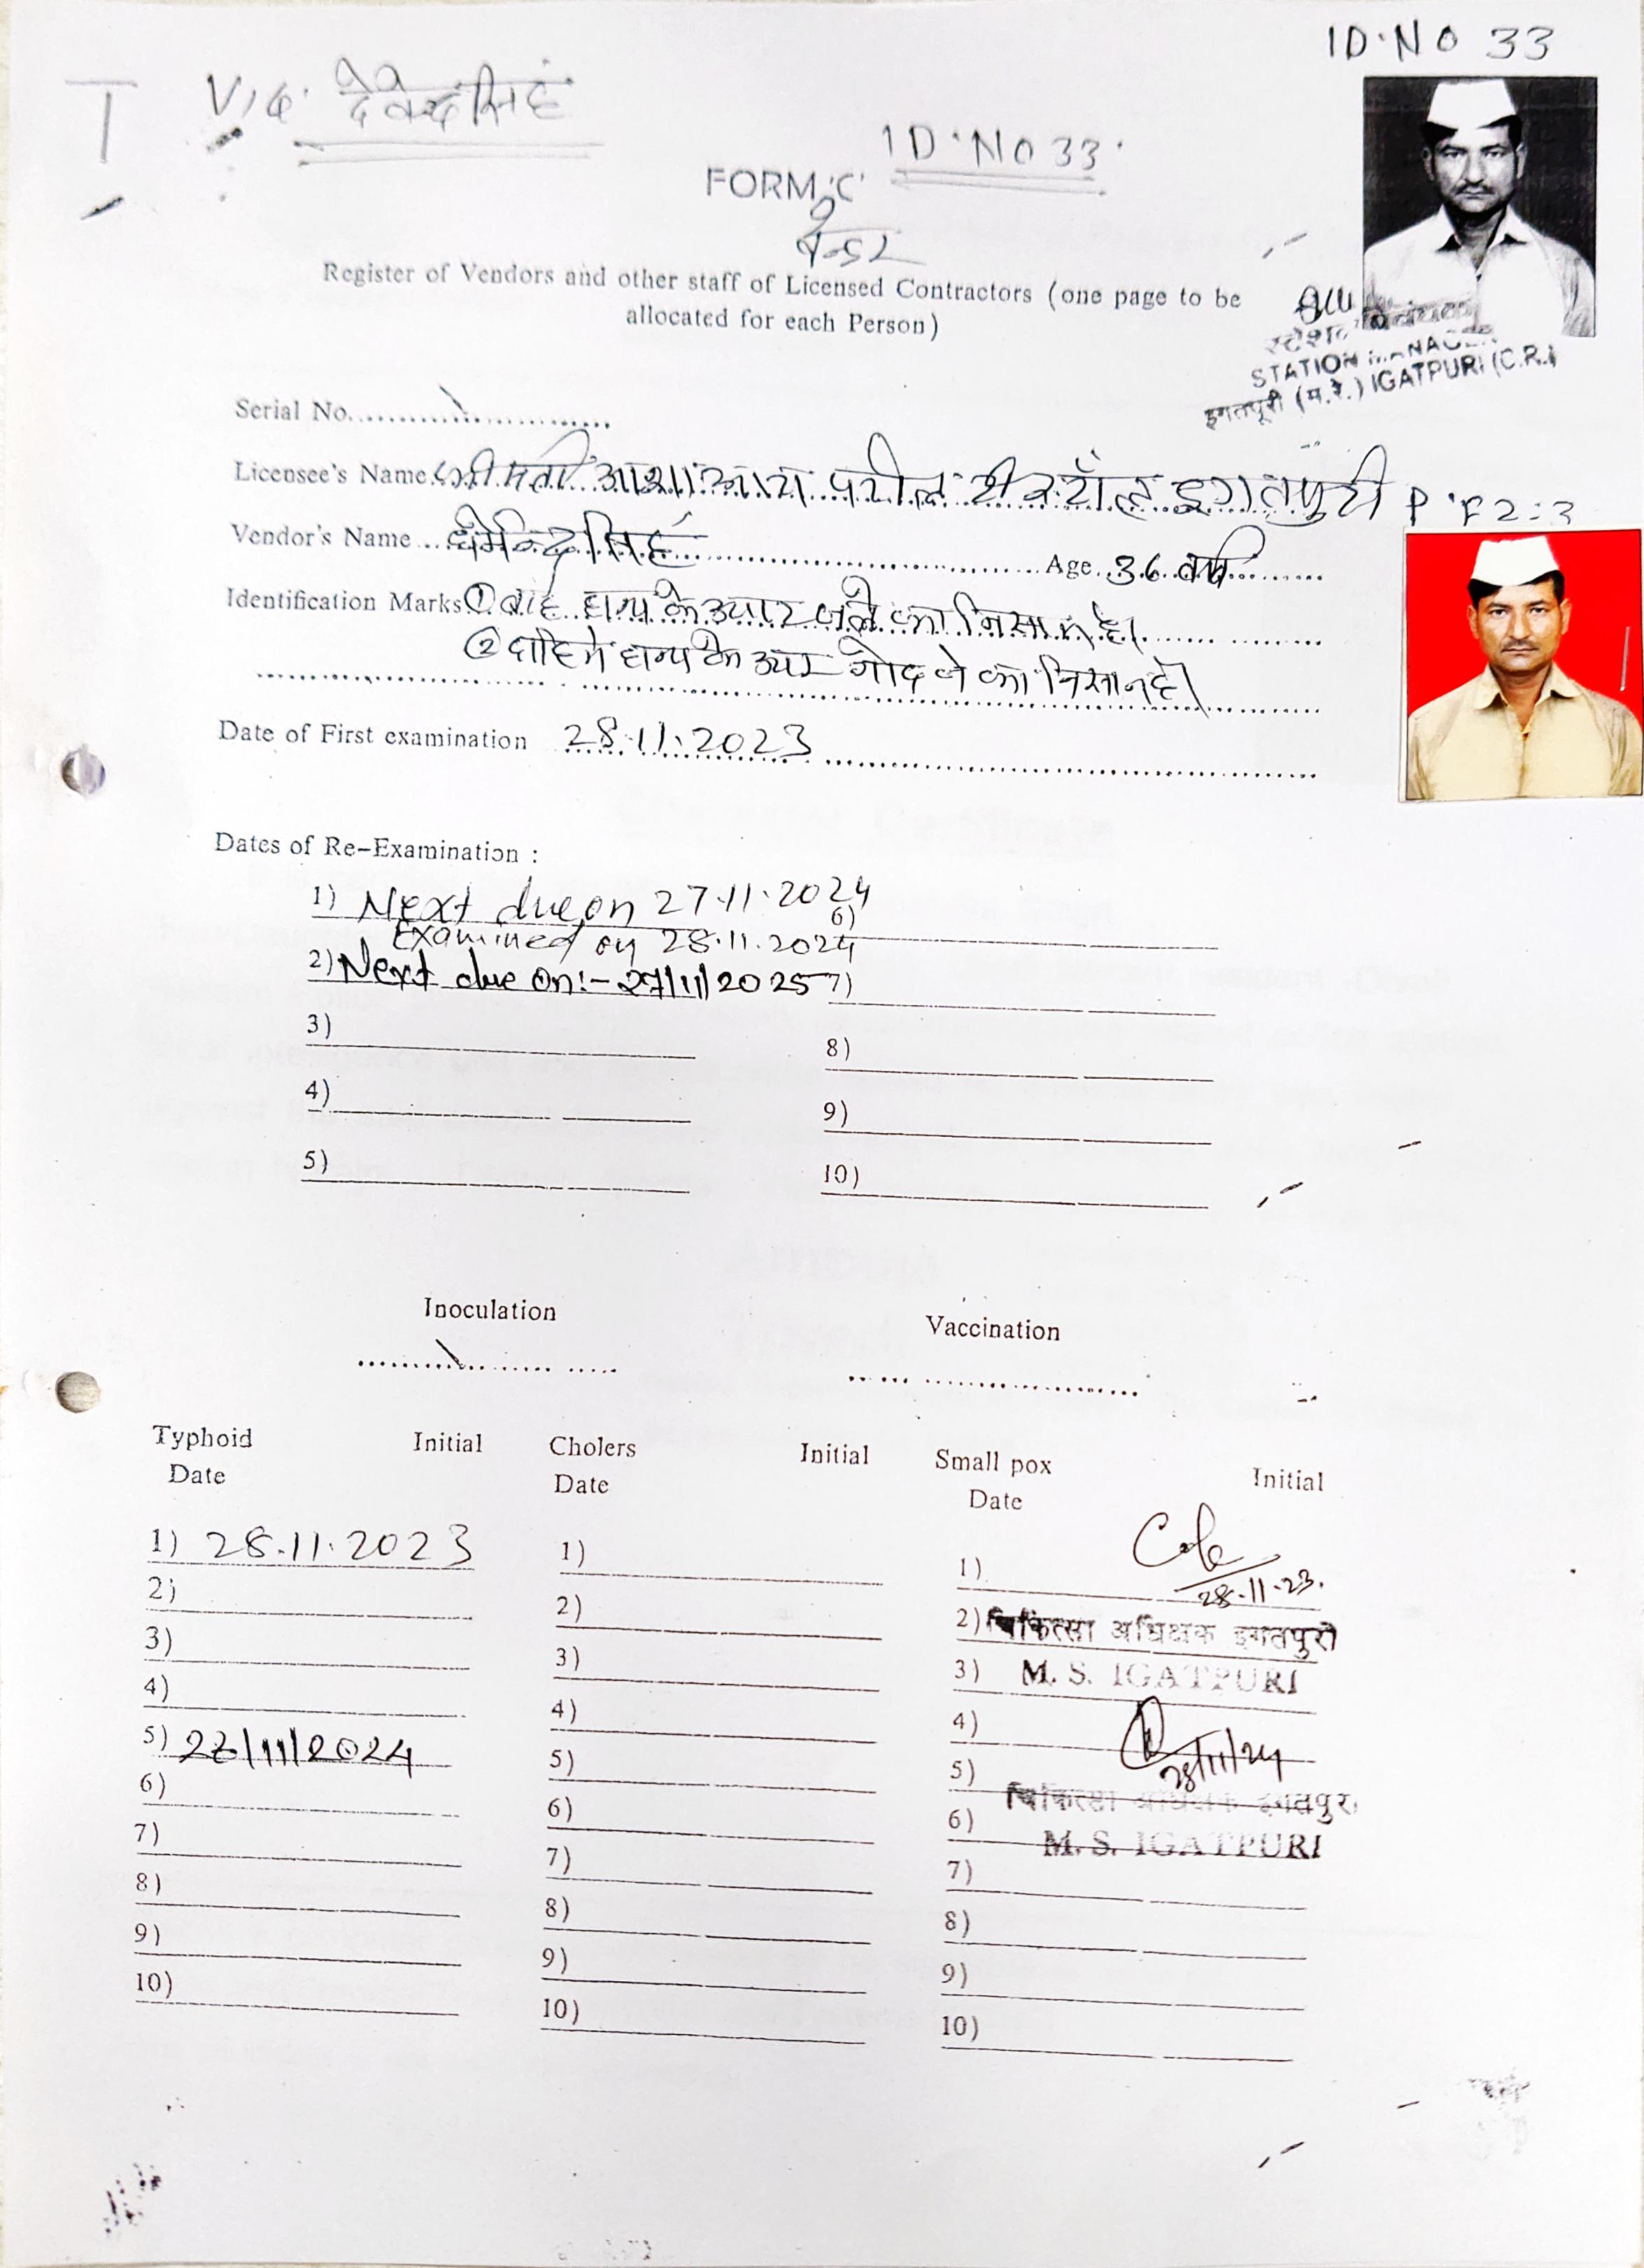 ID.NO 33
T V/C देवेन्द्रसिंह
ID.NO 33.
FORM 'C'
वेन्डर
Register of Vendors and other staff of Licensed Contractors (one page to be
allocated for each Person)
स्टेशन प्रबंधक
STATION MANAGER
इगतपूरी (म.रे.) IGATPURI (C.R.)
Serial No.
Licensee's Name श्रीमती आशाबाय पटील टी स्टॉल इगतपुरी P.F 2:3
Vendor's Name धर्मेन्द्रसिंह Age 36 वर्ष
Identification Marks ① हाथ के उपर जले का निसान है।
② दाहिने हाथ के उपर गोदने का निसान है।
Date of First examination 28.11.2023
Dates of Re-Examination :
1) Next due on 27.11.2024
6)
Examined on 28.11.2024
2) Next due on:- 27/11/2025 7)
3)
8)
4)
9)
5)
10)
Inoculation
Vaccination
Typhoid Initial Cholers Initial Small pox Initial
Date Date Date
1) 28.11.2023 1) 1)
28.11.23.
2) 2) 2) चिकित्सा अधिक्षक इगतपुरी
3) 3) 3) M. S. IGATPURI
4) 4) 4)
5) 28/11/2024 5) 5) 28/11/24
चिकित्सा अधिक्षक इगतपुरी
6) 6) 6) M. S. IGATPURI
7) 7) 7)
8) 8) 8)
9) 9) 9)
10) 10) 10)